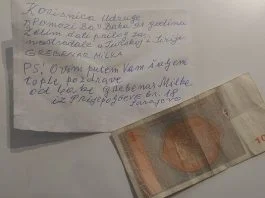 Korisnica Udruge
"Pomozi Ba" Baka 91 godina
Želim dati prilog za
nastradale u Turskoj i Sirije
GREBENAR MILKA
PS! Ovim putem Vam šaljem
tople pozdrave
od bake Grebenar Milke
iz br. 18
Sarajevo
10